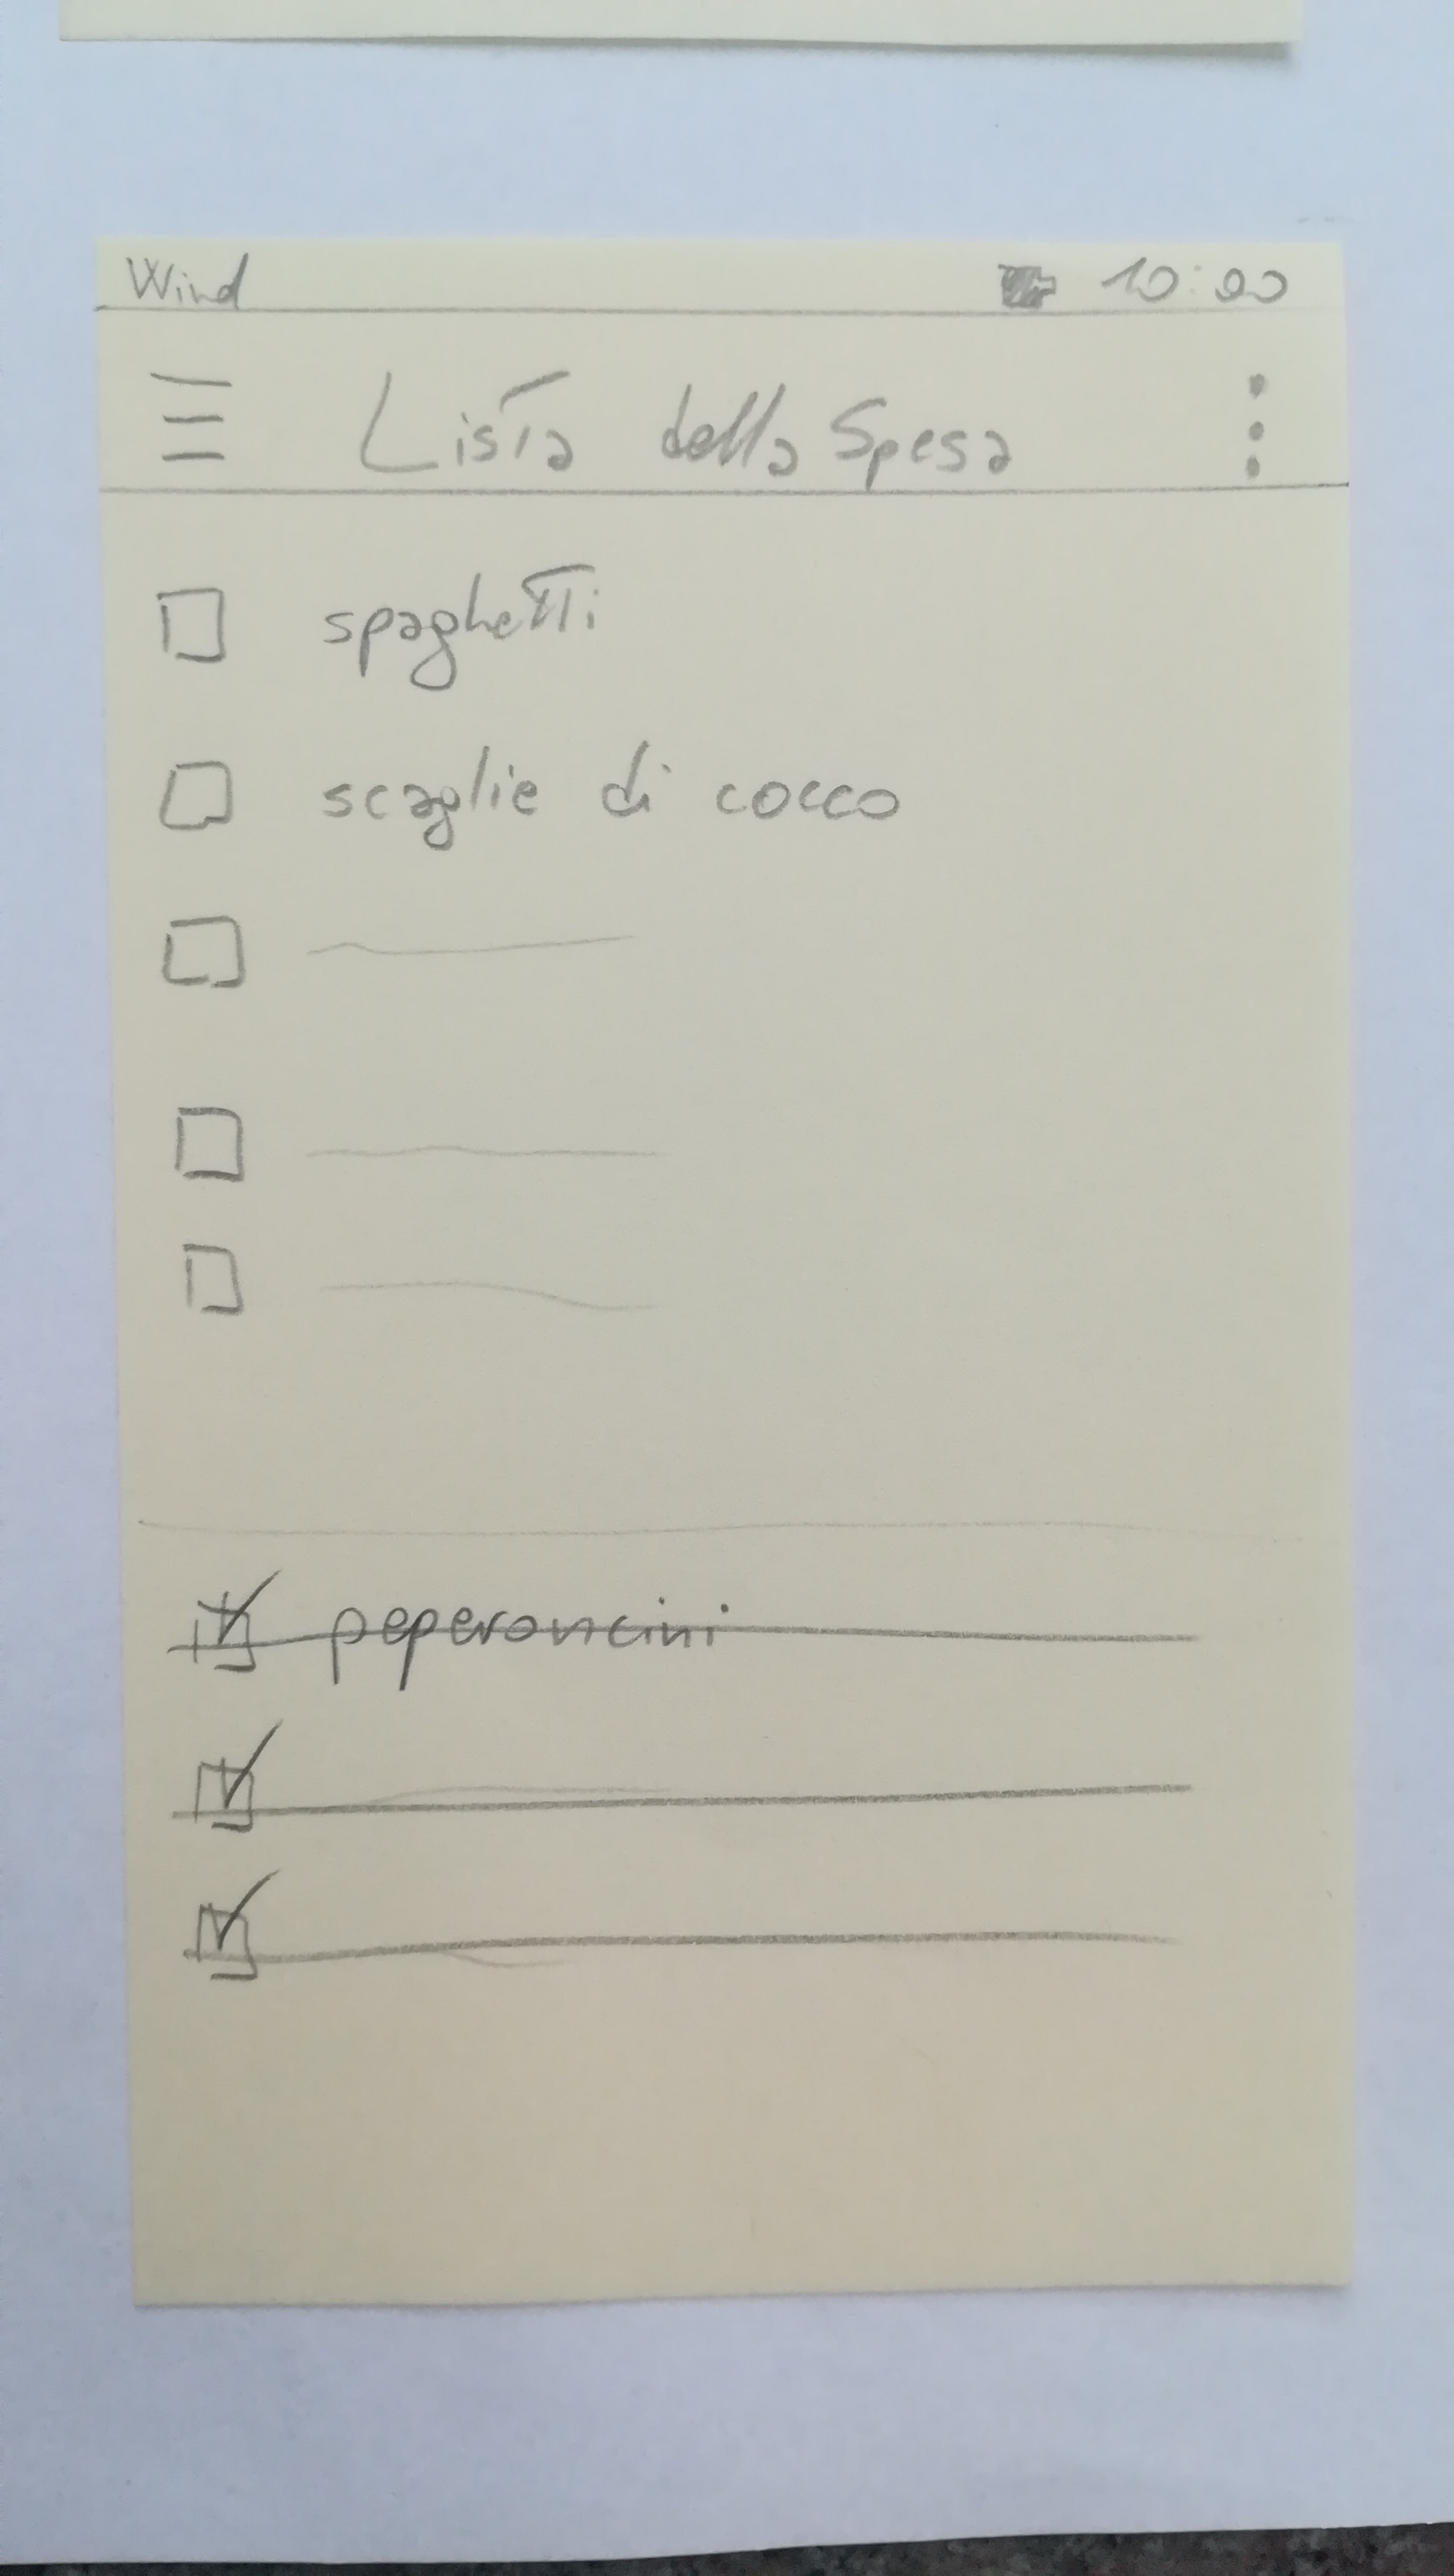 Wind 10:00
Lista della Spesa
spaghetti
scaglie di cocco
peperoncini